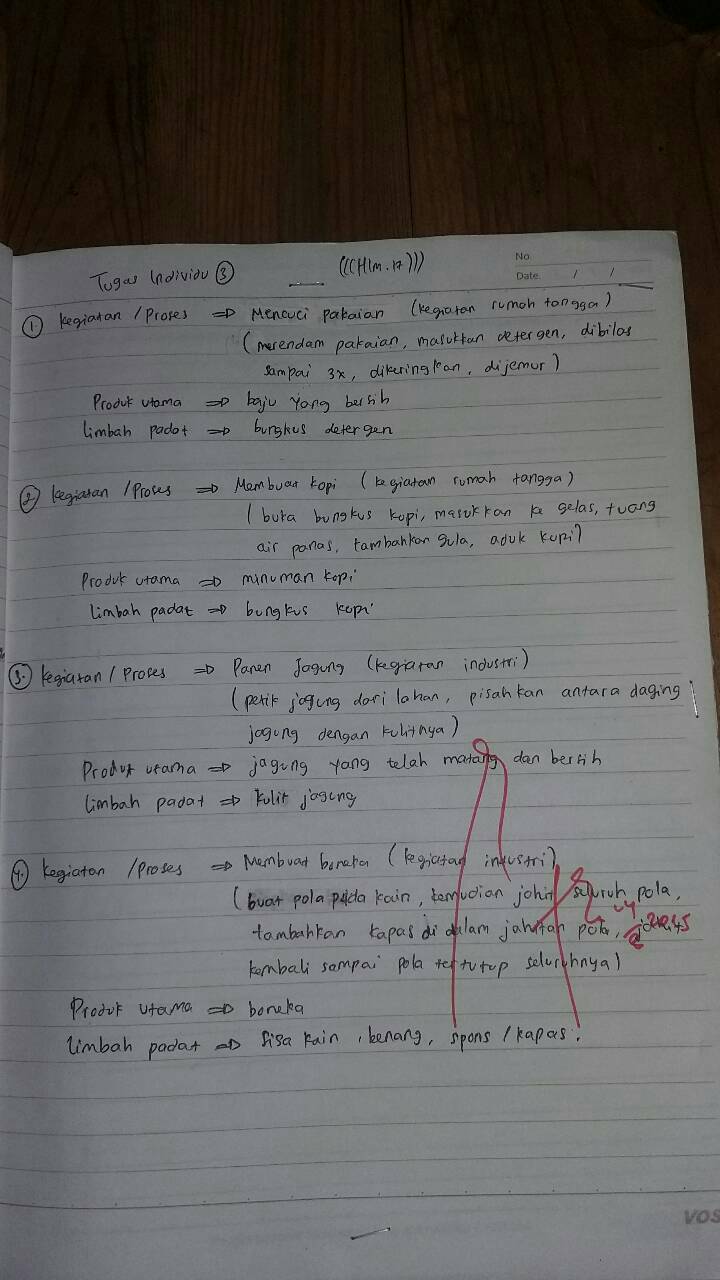 Tugas Individu ③
(((Hlm. 17)))
No
Date / /
① kegiatan / Proses => Mencuci pakaian (kegiatan rumah tangga)
(merendam pakaian, masukkan detergen, dibilas
sampai 3x, dikeringkan, dijemur)
Produk utama => baju yang bersih
limbah padat => bungkus detergen
② kegiatan / Proses => Membuat kopi (kegiatan rumah tangga)
(buka bungkus kopi, masukkan ke gelas, tuang
air panas, tambahkan gula, aduk kopi)
Produk utama => minuman kopi
limbah padat => bungkus kopi
③. kegiatan / Proses => Panen Jagung (kegiatan industri)
(petik jagung dari lahan, pisahkan antara daging
jagung dengan kulitnya)
Produk utama => jagung yang telah matang dan bersih
limbah padat => kulit jagung
④. kegiatan / Proses => Membuat boneka (kegiatan industri)
(buat pola pada kain, kemudian jahit seluruh pola,
tambahkan kapas di dalam jahitan pola,
kembali sampai pola tertutup seluruhnya)
Produk utama => boneka
limbah padat => sisa kain, benang, spons / kapas.
VOS